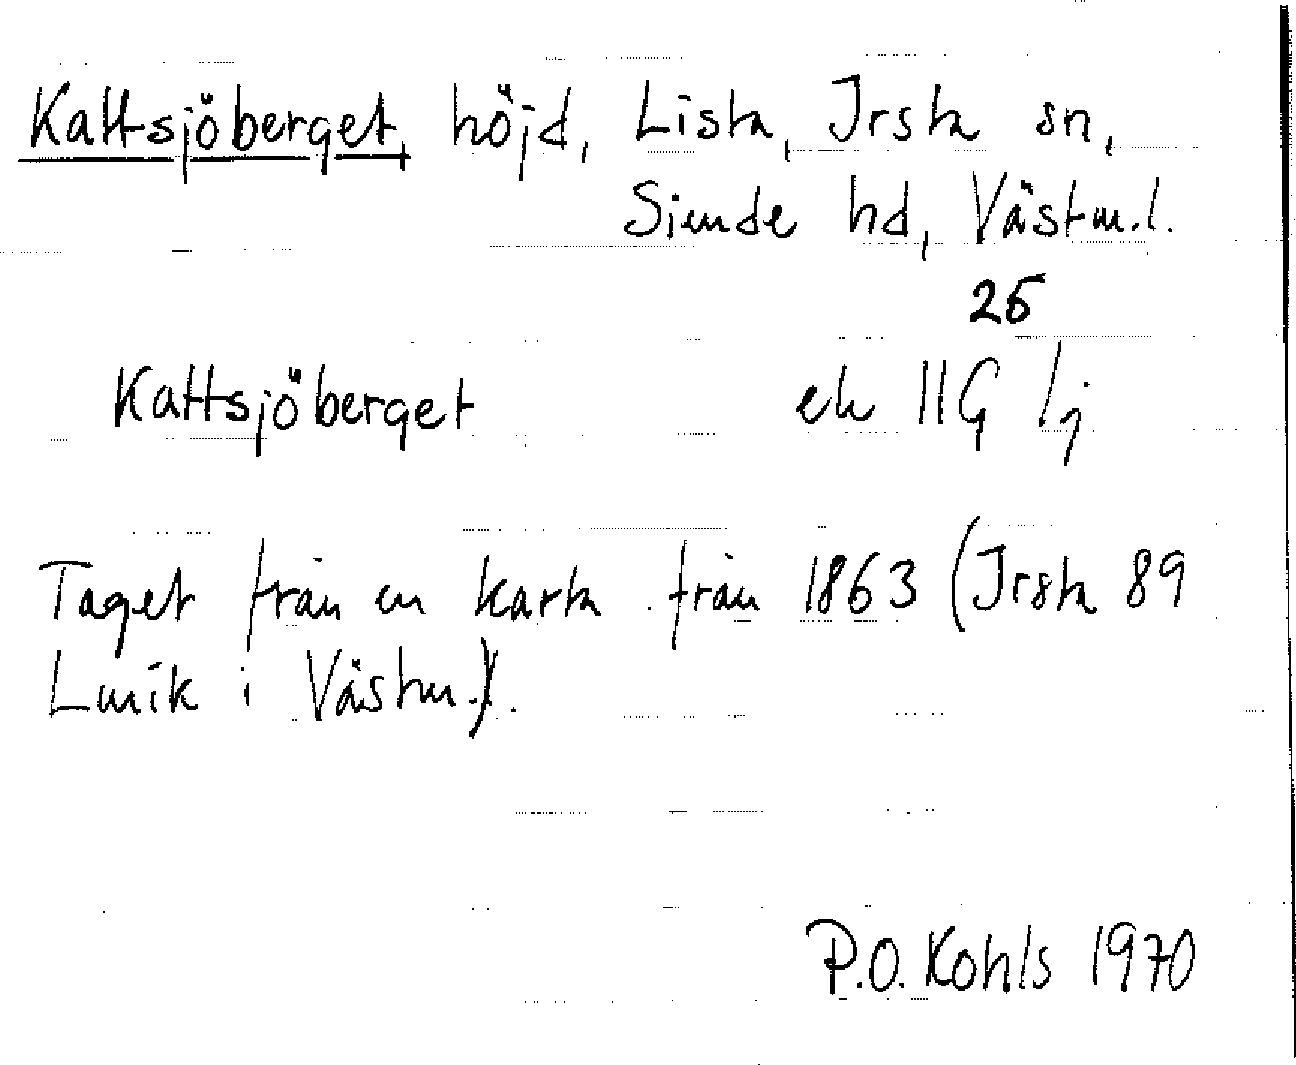 Kattsjöberget, höjd, Lista, Irsta sn,
Siende hd, Västm.l.
25
Kattsjöberget ek 11G 1j
Taget från en karta från 1863 (Irsta 89
Lmík i Västm.).
P.O. Kohls 1970